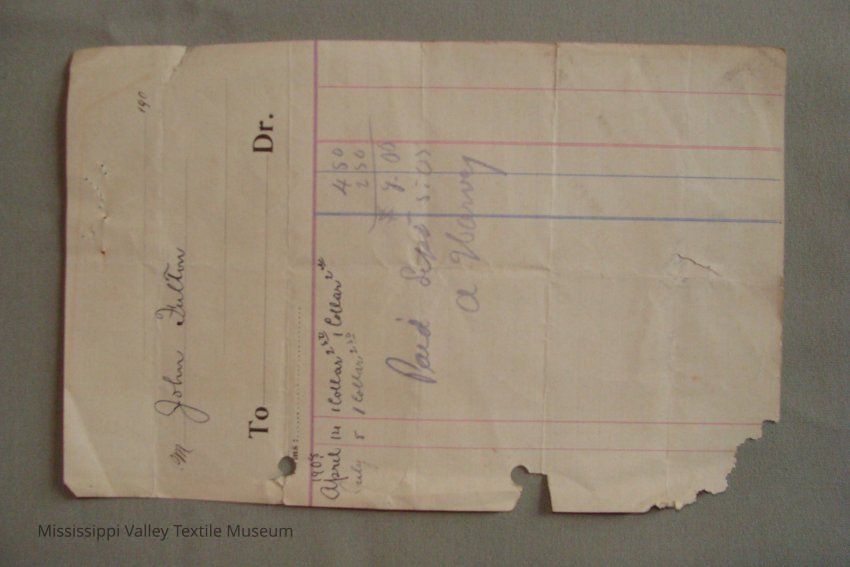 190
M John Fulton
To Dr.
1908
April 14 1 Collar 2nd 1 Collar 2nd 4 50
July 8 1 Collar 2nd 2 50
7.00
Paid Sept
A Harvey
Mississippi Valley Textile Museum